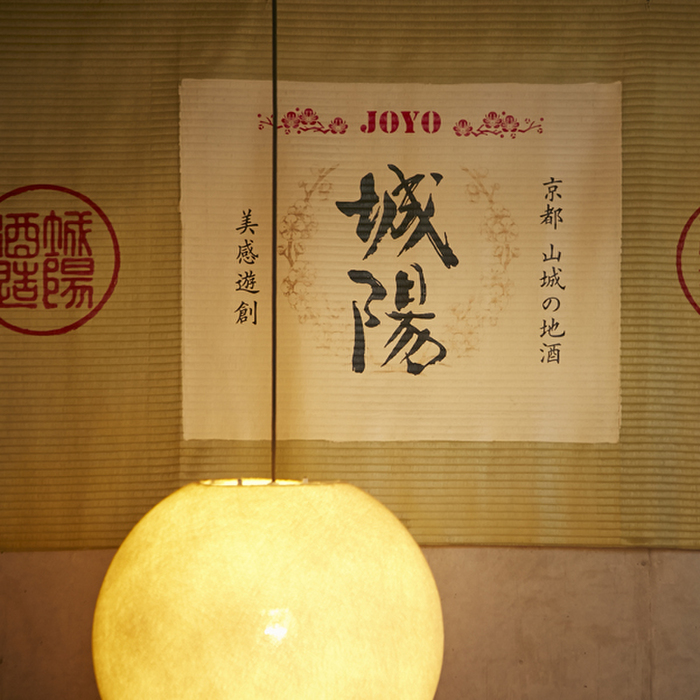 JOYO
城陽
京都 山城の地酒
美感遊創
城陽
酒造